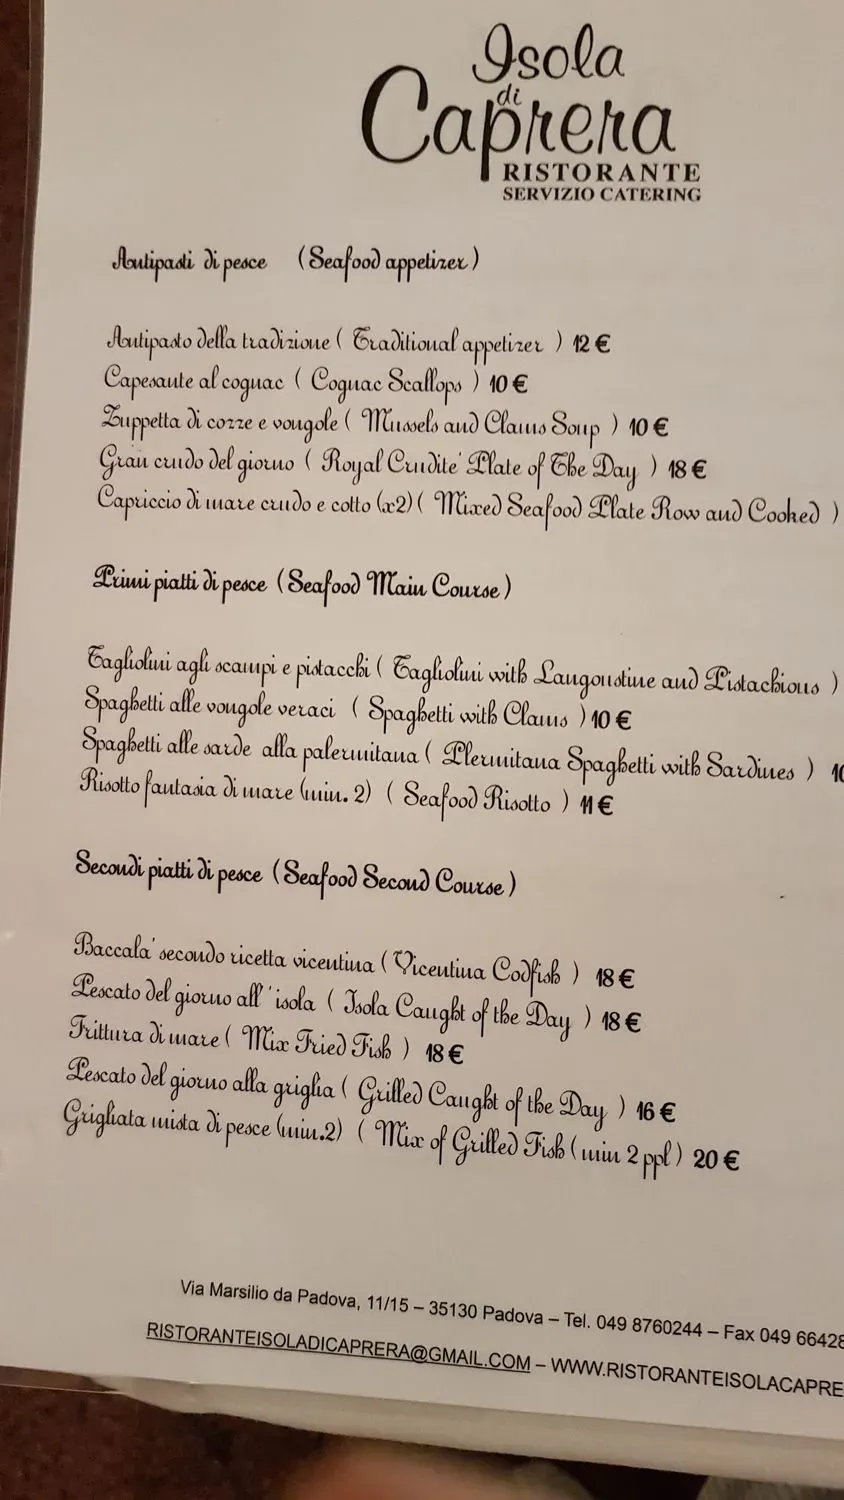 Isola
di
Caprera
RISTORANTE
SERVIZIO CATERING
Antipasti di pesce (Seafood appetizer)
Antipasto della tradizione ( Traditional appetizer ) 12 €
Capesante al cognac ( Cognac Scallops ) 10 €
Zuppetta di cozze e vongole ( Mussels and Clams Soup ) 10 €
Gran crudo del giorno ( Royal Crudite' Plate of The Day ) 18 €
Capriccio di mare crudo e cotto (x2) ( Mixed Seafood Plate Row and Cooked )
Primi piatti di pesce (Seafood Main Course)
Tagliolini agli scampi e pistacchi ( Tagliolini with Langoustine and Pistachious )
Spaghetti alle vongole veraci ( Spaghetti with Clams ) 10 €
Spaghetti alle sarde alla palermitana ( Plermitana Spaghetti with Sardines ) 10
Risotto fantasia di mare (min. 2) ( Seafood Risotto ) 11 €
Secondi piatti di pesce (Seafood Second Course)
Baccala' secondo ricetta vicentina ( Vicentina Codfish ) 18 €
Pescato del giorno all' isola ( Isola Caught of the Day ) 18 €
Frittura di mare ( Mix Fried Fish ) 18 €
Pescato del giorno alla griglia ( Grilled Caught of the Day ) 16 €
Grigliata mista di pesce (min.2) ( Mix of Grilled Fish ( min 2 ppl ) 20 €
Via Marsilio da Padova, 11/15 – 35130 Padova – Tel. 049 8760244 – Fax 049 66428
RISTORANTEISOLADICAPRERA@GMAIL.COM – WWW.RISTORANTEISOLACAPRE